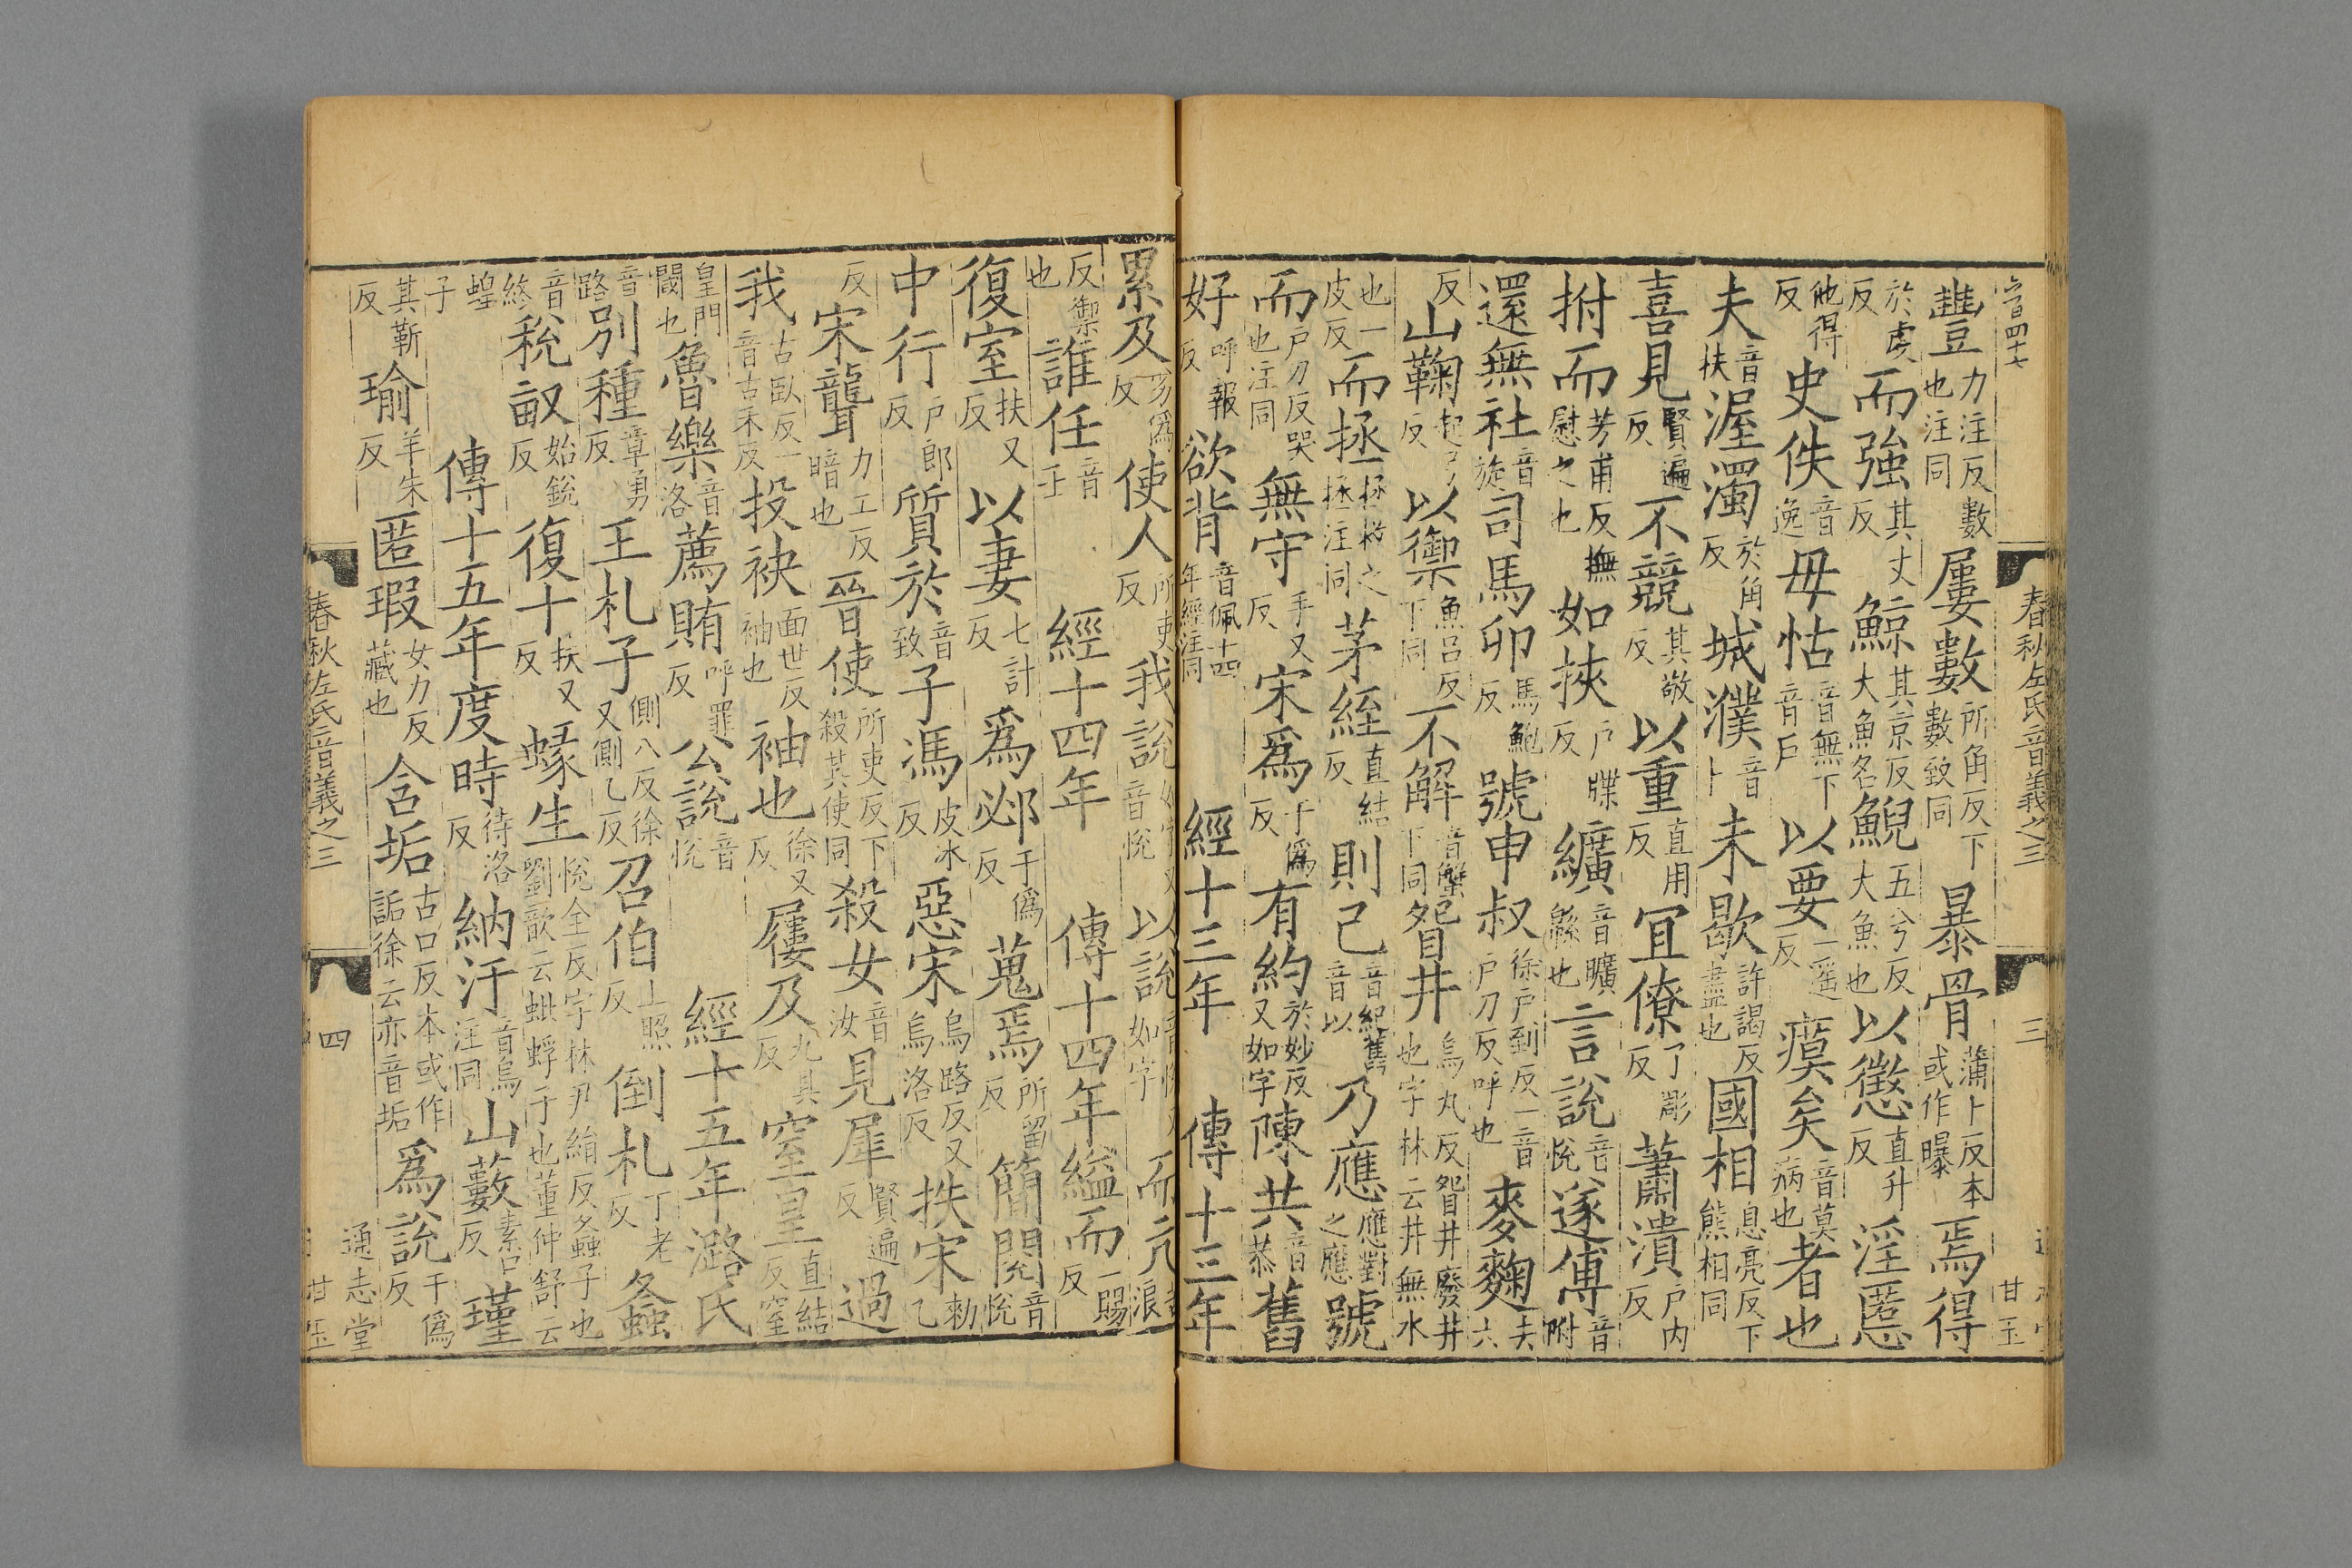 六百四十七 春秋左氏音義之三 三 甘玉
豐力注反數也注同屢數所角反下數致同暴骨蒲卜反本或作曝焉得
於虔反而強其丈反鯨其京反大魚名鯢五兮反大魚也以懲直升反淫慝
他得反史佚音逸毋怙音無下音戶以要一遥反瘼矣音莫病也者也
夫音扶渥濁於角反城濮音卜未歇許謁反盡也國相息亮反下熊相同
喜見賢遍反不競其敬反以重直用反冝僚了彫反蕭潰戶内反
拊而芳甫反撫慰之也如挾戶牒反纊音曠緜也言說音悅遂傅音附
還無社音旋司馬卯馬鮑反號申叔徐戶到反一音戶刀反呼也麥麴六
反山鞠起弓反以禦魚呂反下同不解音蟹下同眢井烏丸反眢井廢井也字林云井無水
也一皮反而拯拯救之拯注同茅絰直結反則己音紀舊音以乃應應對之應號
而戶刀反哭也注同無守手又反宋爲于僞反有約於妙反又如字陳共音恭舊
好呼報反欲背音佩十四年經注同經十三年傳十三年
累及劣僞反使人所吏反我說音悅以說如字而亢浪
反禦也誰任音壬經十四年傳十四年縊而一賜反
復室扶又反以妻七計反爲邲于僞反蒐焉所留反簡閱音悅
中行戶郎反質於音致子馮皮冰反惡宋烏路反又烏洛反抶宋勑乙
反宋聾力工反暗也晉使所吏反下殺其使同殺女音汝見犀賢遍反過
我古臥反一音古禾反投袂面世反袖也袖也徐又反屨及九具反窒皇直結反窒
皇門闑也魯樂音洛薦賄呼罪反公說音悅經十五年潞氏
音路別種章勇反王札子側八反徐又側乙反召伯上照反倒札丁老反螽
音終稅畝始銳反復十扶又反蝝生悅全反字林尹絹反螽子也劉歆云蚍蜉子也董仲舒云
蝗子傳十五年度時待洛反納汙音烏注同山藪素口反瑾
其靳反瑜羊朱反匿瑕女力反藏也含垢古口反本或作詬徐云亦音垢爲說于僞反
春秋左氏音義之三 四 通志堂 甘玉